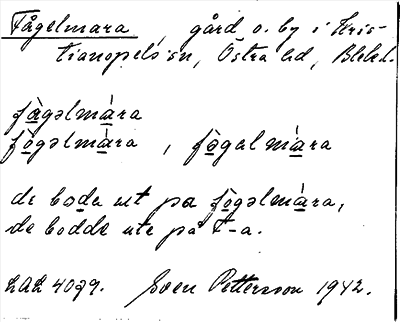 Fågelmara, gård o. by i Kris-
tianopels sn, Östra hd, Blek.
fàgəlmára
fògəlmára, fògəlmára
de bodə ut pa fògəlmára,
de bodde ute på F-a.
LAL 4079. Sven Pettersson 1942.